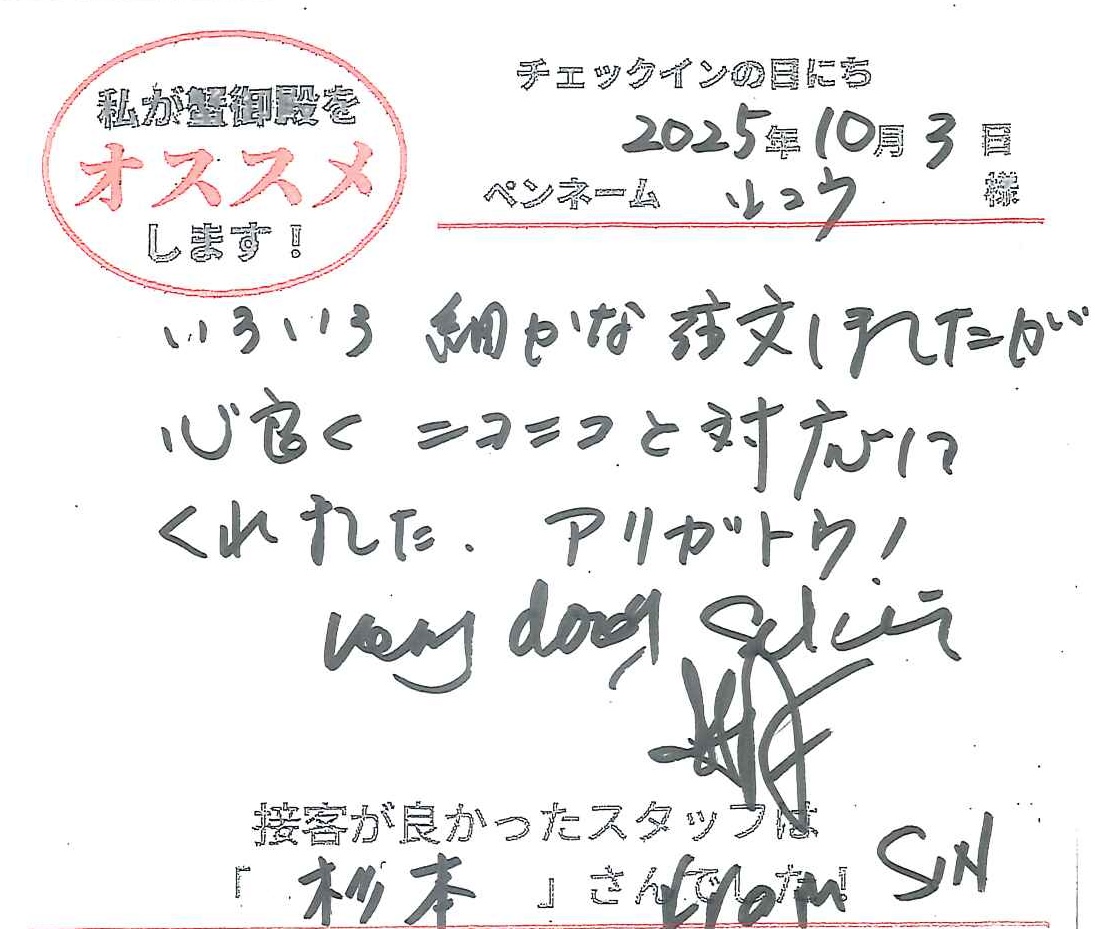 私が蟹御殿を
オススメ
します!
チェックインの日にち
2025年10月3日
ペンネーム ルコウ 様
いろいろ 細かな 注文しましたが
心良く ニコニコと対応して
くれました. アリガトウ!
very good
接客が良かったスタッフは
「 杉本 」さんでした!